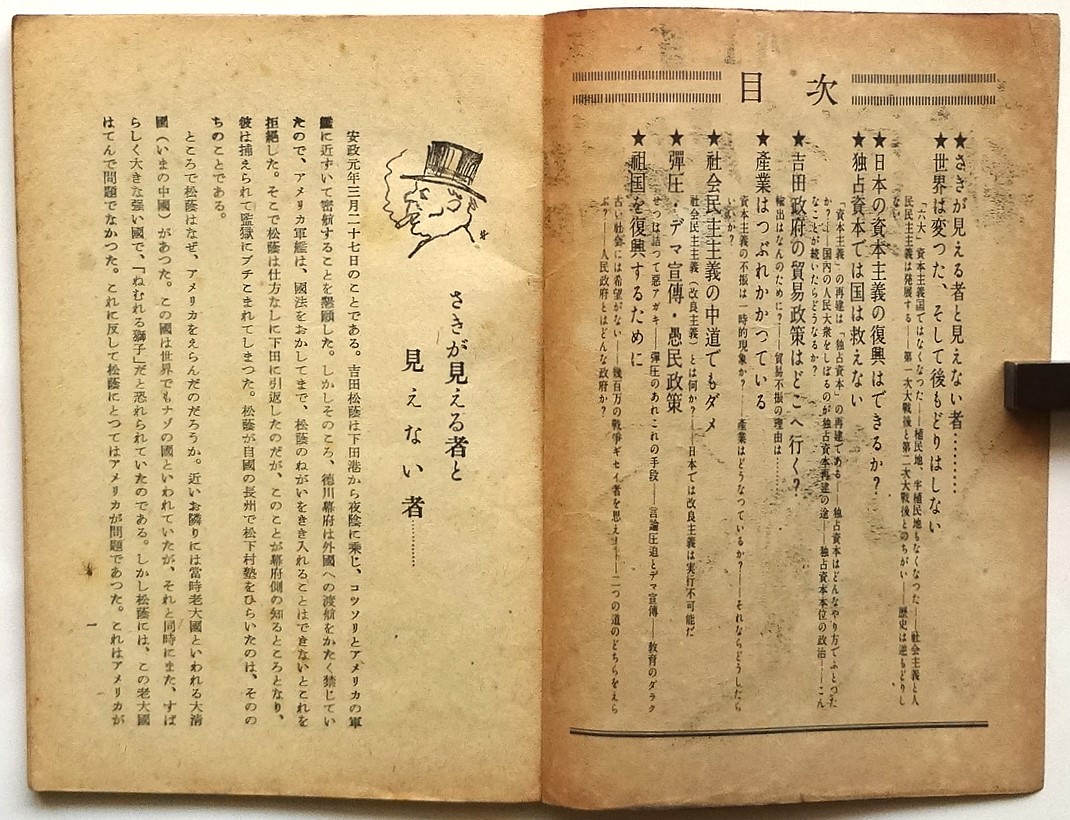 目次
★さきが見える者と見えない者………
★世界は変つた、そして後もどりはしない
「六大」資本主義国ではなくなつた――植民地、半植民地もなくなつた――社会主義と人
民民主主義は発展する――第一次大戦後と第二次大戦後とのちがい――歴史は逆もどりし
ない
★日本の資本主義の復興はできるか?
★独占資本では国は救えない
「資本主義」の再建は「独占資本」の再建である――独占資本はどんなやり方でふとつた
か?――国内の人民大衆をしばるのが独占資本再建の途――独占資本本位の政治――こん
なことが続いたらどうなるか?
★吉田政府の貿易政策はどこへ行く?
輸出はなんのために?――貿易不振の理由は……
★産業はつぶれかかつている
資本主義の不振は一時的現象か?――産業はどうなつているか?――それならどうしたら
いいか?
★社会民主主義の中道でもダメ
社会民主主義(改良主義)とは何か?――日本では改良主義は実行不可能だ
★彈圧・デマ宣傳・愚民政策
せつぱ詰つて惡アガキ――彈圧のあれこれの手段――言論圧迫とデマ宣傳――教育のダラク
★祖国を復興するために
古い社会には希望がない――幾百万の戦争ギセイ者を思え!――二つの道のどちらをえら
ぶ?――人民政府とはどんな政府か?
さきが見える者と
見えない者…………
安政元年三月二十七日のことである。吉田松蔭は下田港から夜陰に乘じ、コツソリとアメリカの軍
艦に近ずいて密航することを懇願した。しかしそのころ、德川幕府は外國への渡航をかたく禁じてい
たので、アメリカ軍艦は、國法をおかしてまで、松蔭のねがいをきき入れることはできないとこれを
拒絕した。そこで松蔭は仕方なしに下田に引返したのだが、このことが幕府側の知るところとなり、
彼は捕えられて監獄にブチこまれてしまつた。松蔭が自國の長州で松下村塾をひらいたのは、そのの
ちのことである。
ところで松蔭はなぜ、アメリカをえらんだのだろうか。近いお隣りには當時老大國といわれる大淸
國(いまの中國)があつた。この國は世界でもナゾの國といわれていたが、それと同時にまた、すば
らしく大きな强い國で、「ねむれる獅子」だと恐れられていたのである。しかし松蔭には、この老大國
はてんで問題でなかつた。これに反して松蔭にとつてはアメリカが問題であつた。これはアメリカが
一